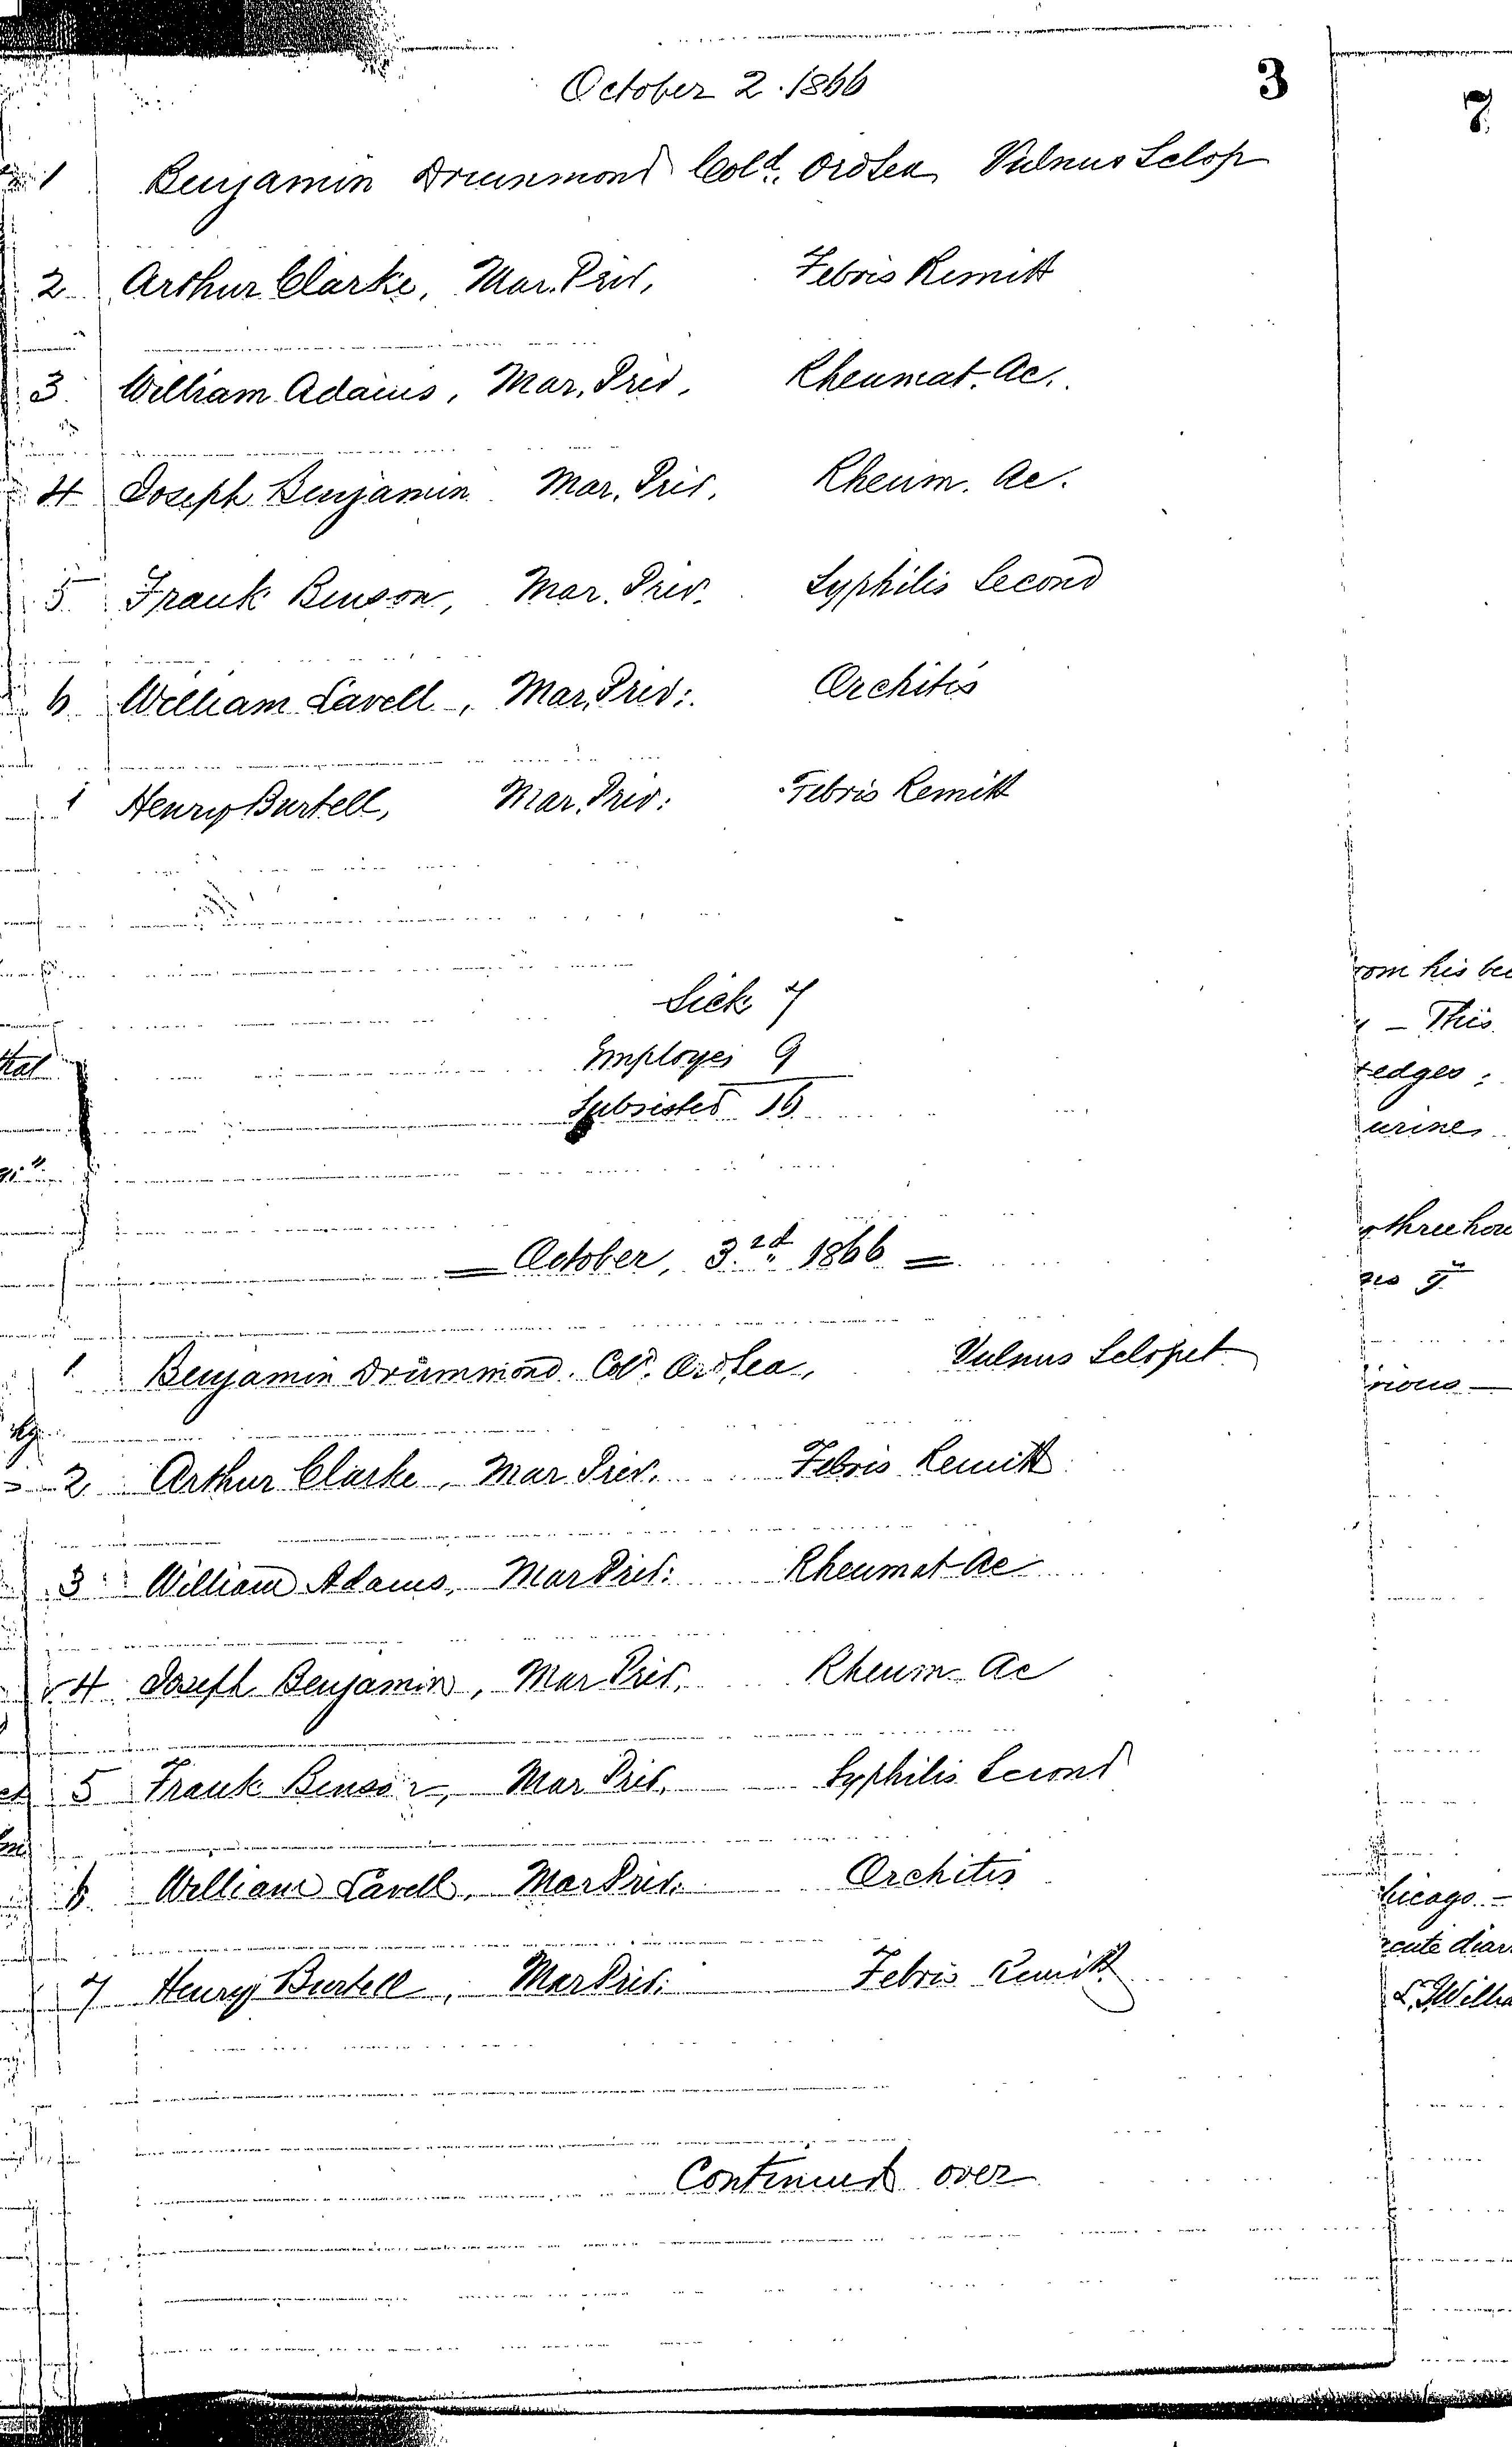 October 2. 1866
3
7
1 Benjamin Drummond Col^d. Ord Sea Vulnus Sclop
2 Arthur Clarke, Mar. Priv, Febris Remitt
3 William Adams, Mar. Priv, Rheumat. Ac.
4 Joseph Benjamin Mar. Priv, Rheum. Ac.
5 Frank Benson, Mar. Priv. Syphilis Second
6 William Lavell, Mar. Priv: Orchitis
1 Henry Burtell, Mar. Priv: Febris Remitt
Sick 7
Employes 9
Subsisted 16
October, 3.^rd 1866
1 Benjamin Drummond. Col^d. Ord, Sea, Vulnus Sclopet
2 Arthur Clarke, Mar Priv. Febris Remitt
3 William Adams, Mar Priv: Rheumat Ac
4 Joseph Benjamin, Mar Priv. Rheum Ac
5 Frank Benson, Mar Priv. Syphilis Second
6 William Lavell, Mar Priv. Orchitis
7 Henry Burtell, Mar Priv: Febris Remitt
Continued over
rom his bed
– This
edges;
urine
three hou
rious –
hicago. –
cute diar
L. J. Willia